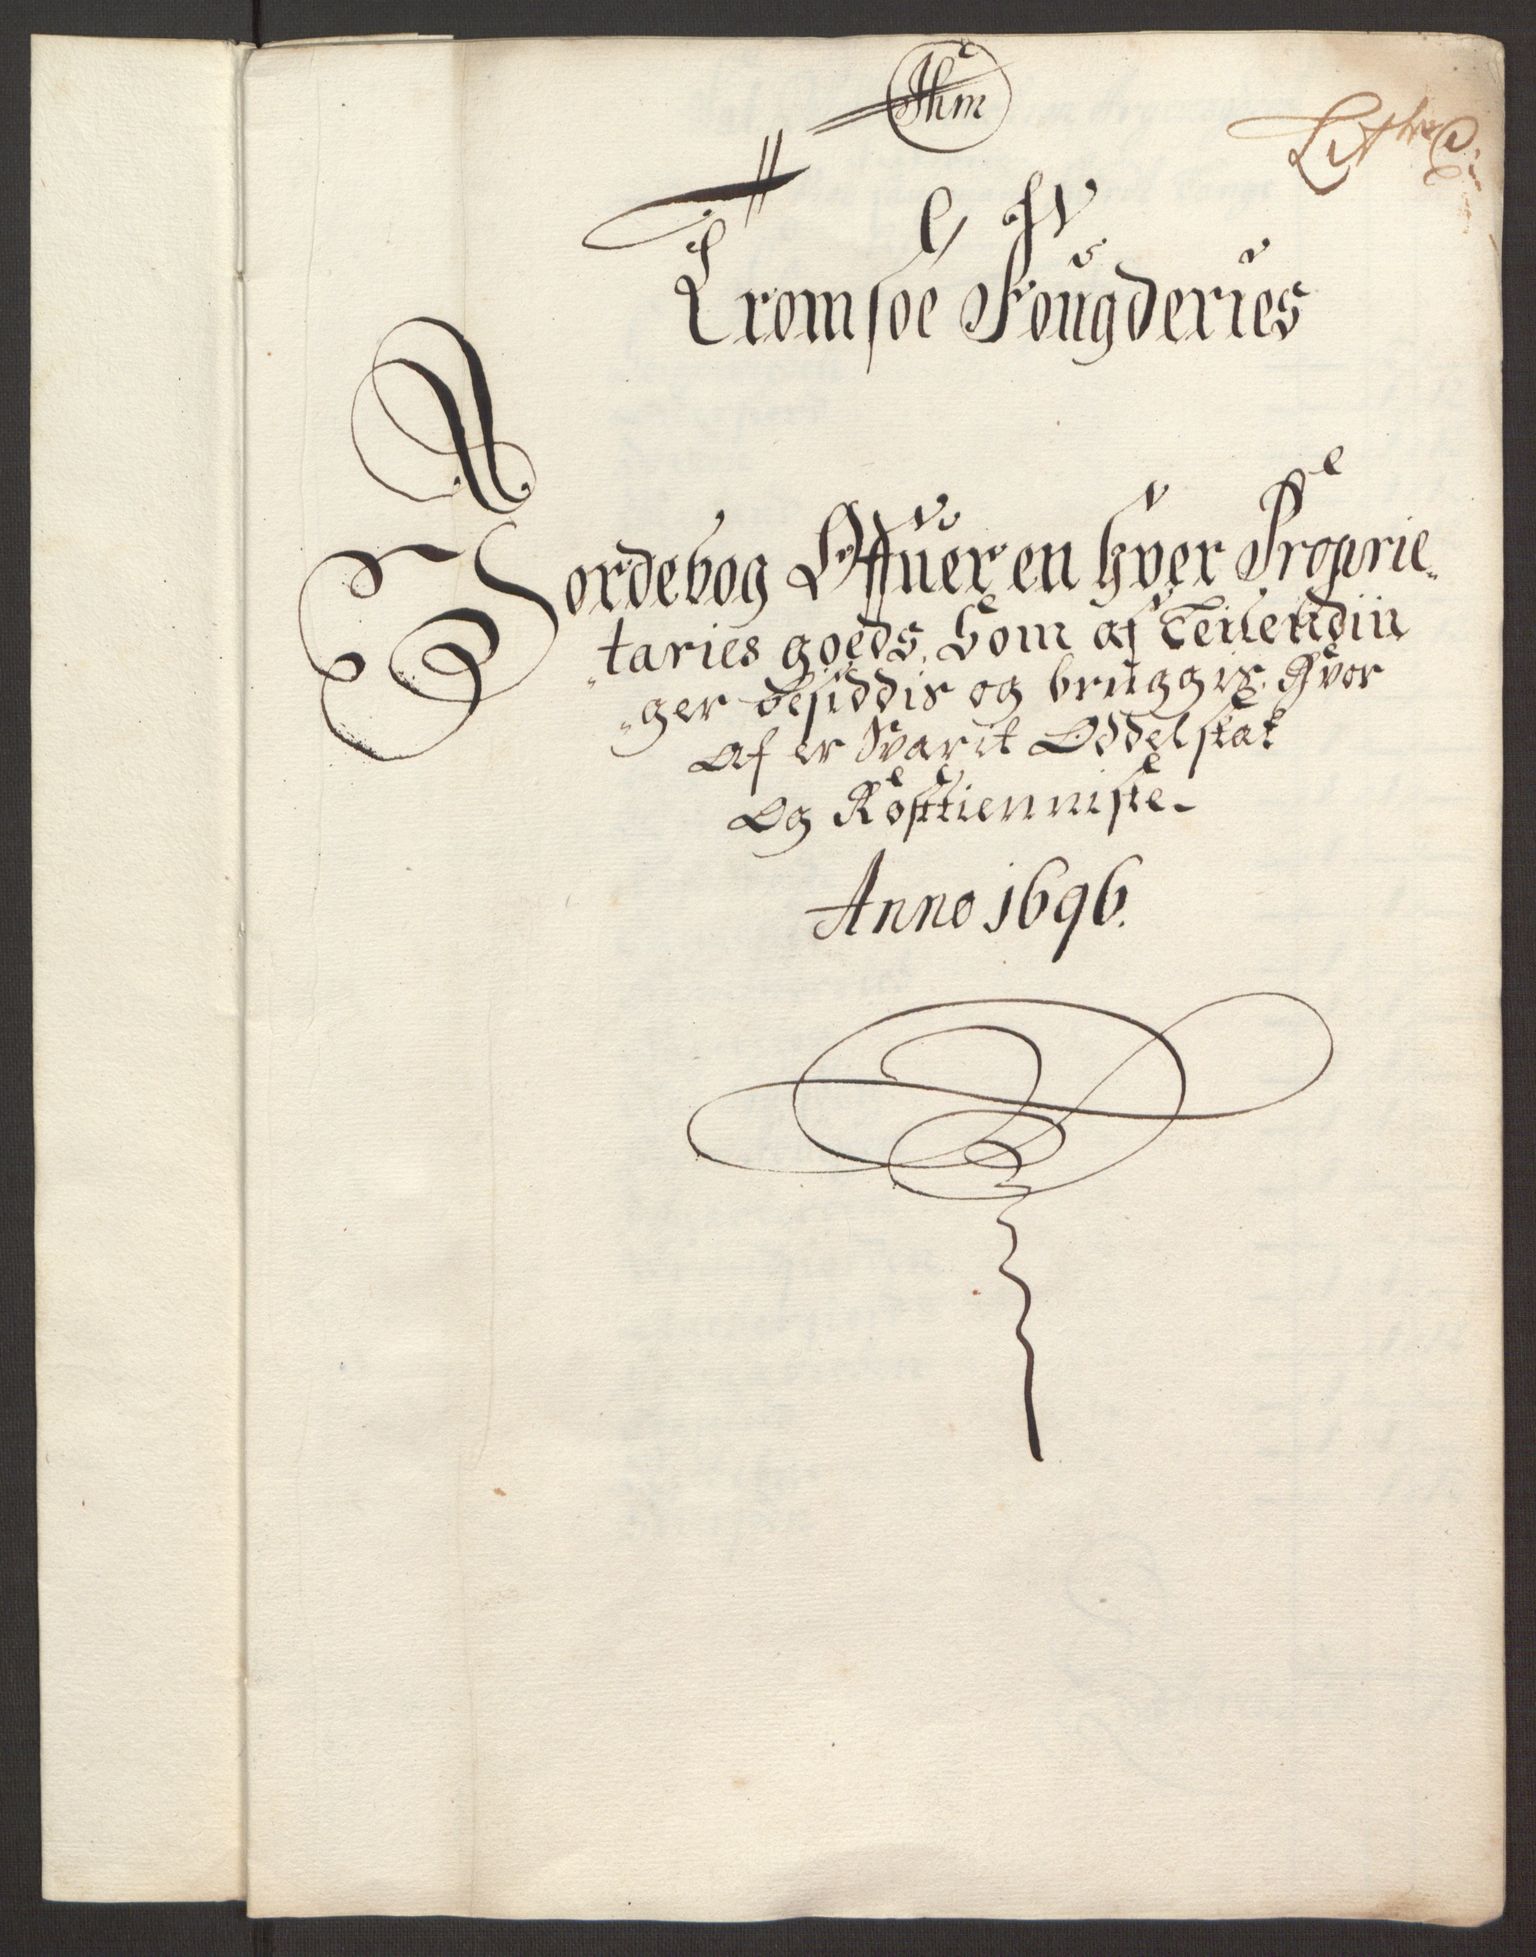 Tromsøe Fougderies
Jordebog Offuer en hver Proprie„
„taries goeds, Som af Teilendin
„ger besiddis og bruggis, Hvor
af er Svarit Oddelskat
Og Rosttienniste–
Anno 1696.